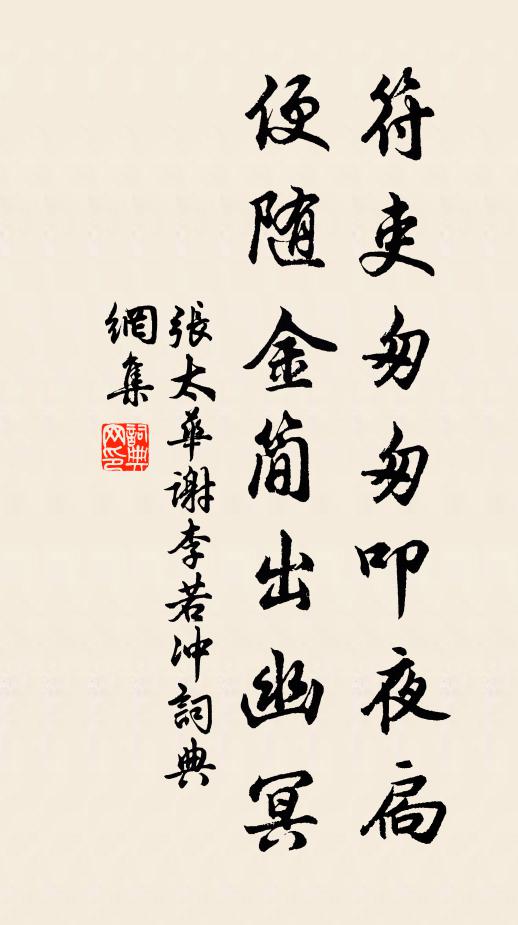 符吏匆匆叩夜扃
便随金简出幽冥
張太華谢李若冲詞典
網集
詞典
网印